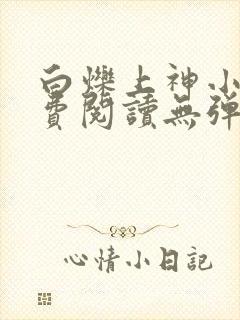 白爍上神小
費閱讀無彈
心情小日記